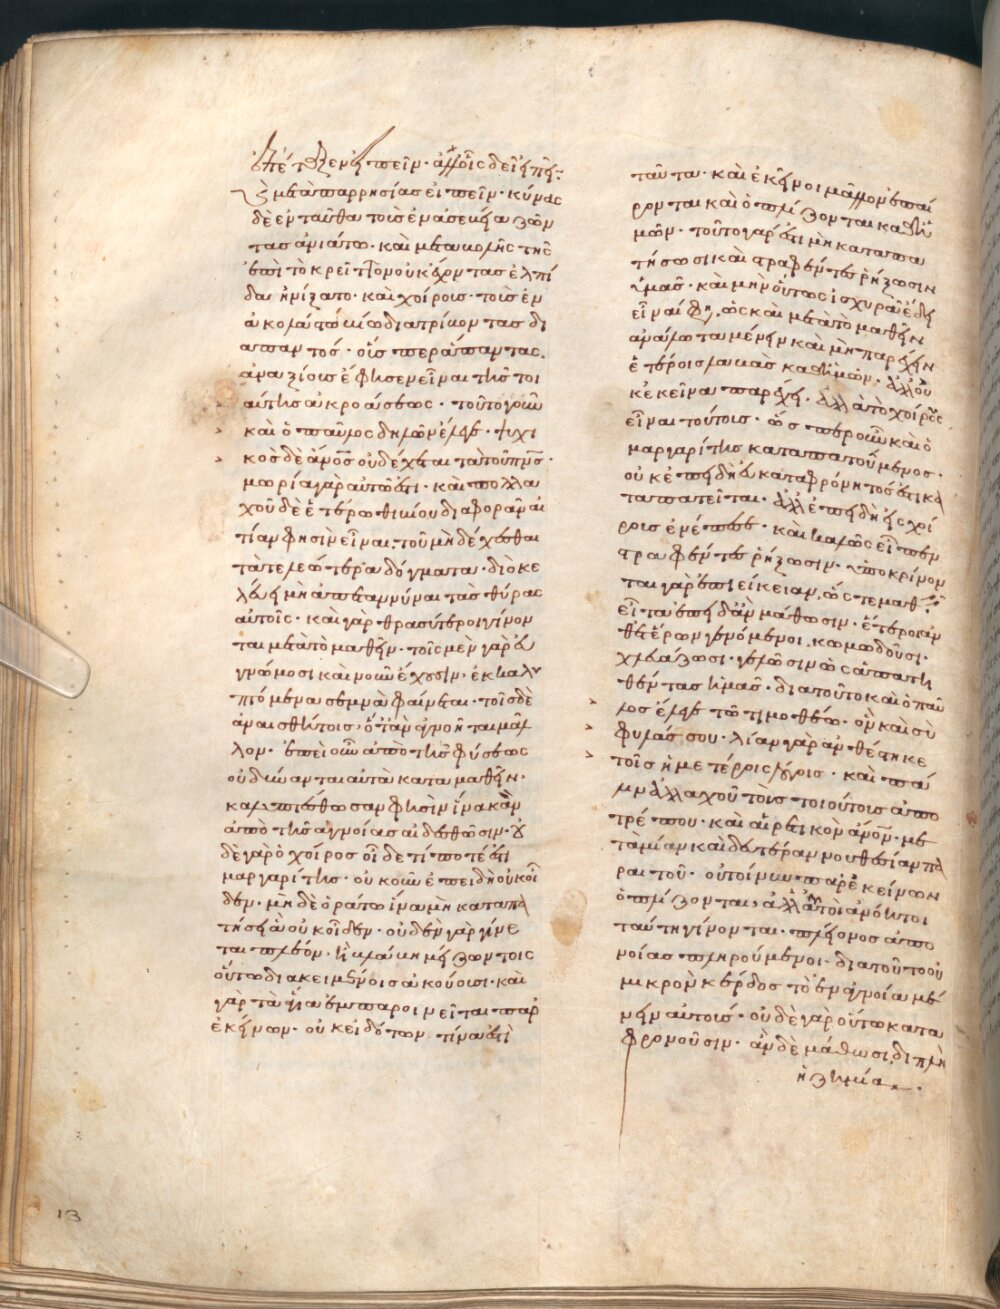 μετὰ παρρησίας εἰπεῖν· κύνας
δὲ ἐνταῦθα τοὺς ἐν ἀσεβεία ζῶν
τας ἀνιάτω· καὶ μεταβολῆς τῆς
ἐπὶ τὸ κρεῖττον οὐκ ἔχοντας ἐλπί
δα ἠνίξατο· καὶ χοίρους· τοὺς ἐν
ἀκολάστω βίω διατρίβοντας δι
απαντός· οὕσπερ ἅπαντας
ἀναξίους ἔφησεν εἶναι τῆς τοι
αύτης ἀκροάσεως· τοῦτο γοῦν
καὶ ὁ παῦλος δηλῶν ἔλεγε· ψυχι
κὸς δὲ ἄνος οὐ δέχεται τὰ τοῦ πνς·
μωρία γὰρ αὐτῶ ἐστι· καὶ πολλα
χοῦ δὲ ἑτέρωθι βίου διαφθορὰν αἰ
τίαν φησὶν εἶναι, τοῦ μὴ δέχεσθαι
τὰ τελεώτερα δόγματα· διὸ κε
λεύει μὴ ἀναπεταννύναι τὰς θύρας
αὐτοῖς· καὶ γὰρ θρασύτεροι γίνον
ται μετὰ τὸ μαθεῖν· τοῖς μὲν γὰρ εὐ
γνώμοσι καὶ νοῦν ἔχουσιν, ἐκκαλυ
πτόμενα σεμνὰ φαίνεται· τοῖς δὲ
ἀναισθήτοις, ὅταν ἀγνοῆται μᾶλ
λον· ἐπεὶ οὖν ἀπὸ τῆς φύσεως
οὐ δύνανται αὐτὰ καταμαθεῖν·
καλυπτέσθωσαν φησὶν ἵνα κἂν
ἀπὸ τῆς ἀγνοίας αἰδεσθῶσιν· οὐ
δὲ γὰρ ὁ χοῖρος οἶδε τί ποτέ ἐστι
μαργαρίτης· οὐκοῦν ἐπειδὴ οὐκ οἶ
δεν· μηδὲ ὁράτω ἵνα μὴ καταπα
τήση ἃ οὐκ οἶδεν· οὐδὲν γὰρ γίνε
ται πλέον· ἢ βλάβη μείζων τοῖς
οὕτω διακειμένοις ἀκούουσι· καὶ
γὰρ τὰ ἅγια ἐμπαροινεῖται παρ
ἐκείνων· οὐκ εἰδότων τίνα ἐστὶ
ταῦτα· καὶ ἐκεῖνοι μᾶλλον ἐπαί
ρονται καὶ ὁπλίζονται καθ ἡ
μῶν· τοῦτο γάρ ἐστι μὴ καταπα
τήσωσι καὶ στραφέντες ῥήξωσιν
ὑμᾶς·
εἶναί φη, ὡς καὶ μετὰ τὸ μαθεῖν
ἀνάλωτα μένειν καὶ μὴ παρέχειν
ἑτέροις λαβὰς καθ ἡμῶν· ἀλλ οὐ
κ ἐκεῖνα παρέχει· ἀλλὰ τὸ χοίρους
εἶναι τούτους· ὥσπερ οὖν καὶ ὁ
μαργαρίτης καταπατούμενος·
οὐκ ἐπειδὴ εὐκαταφρόνητός ἐστι κα
ταπατεῖται· ἀλλ ἐπειδὴ εἰς χοί
ρους ἐνέπεσε· καὶ καλῶς εἶπεν
στραφέντες ῥήξωσιν· ὑποκρίνον
ται γὰρ ἐπιείκειαν, ὥστε μαθεῖν·
εἶτα ἐπειδὰν μάθωσιν· ἕτεροι ἀν
θ ἑτέρων γενόμενοι, κωμωδοῦσι·
χλευάζωσι· γελῶσιν ὡς ἀπατη
θέντας ἡμᾶς· διατοῦτο καὶ ὁ παῦ
λος ἔλεγε τῶ τιμοθέω· ὃν καὶ σὺ
φυλάσσου· λίαν γὰρ ἀνθέστηκε
τοῖς ἡμετέροις λόγοις· καὶ πά
λιν ἀλλαχοῦ τοὺς τοιούτους ἀπο
τρέπου· καὶ αἱρετικὸν ἄνον· με
τὰ μίαν καὶ δευτέραν νουθεσίαν πα
ραιτοῦ· οὐ τοίνυν παρ ἐκείνων
ὁπλίζονται, ἀλλ αὐτοὶ ἀνόητοι
ταύτη γίνονται· πλείονος ἀπο
νοίας πληρούμενοι· διατοῦτο οὐ
μικρὸν κέρδος τὸ ἐν ἀγνοία μέ
νειν αὐτούς· οὐδὲ γὰρ οὕτω κατα
φρονοῦσιν· ἂν δὲ μάθωσι, διπλῆ
ἡ ζημία
13